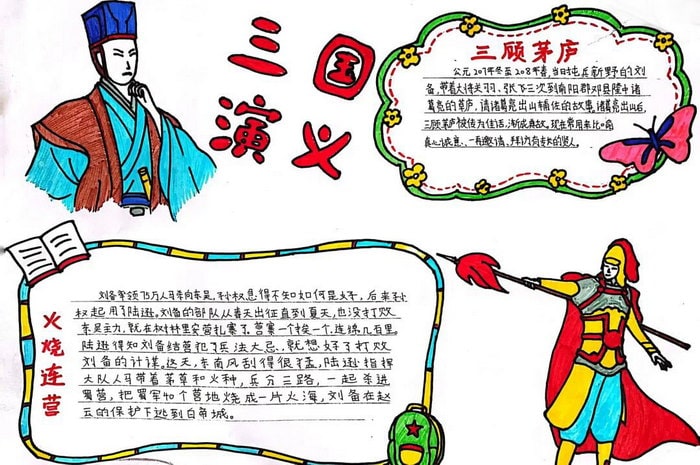 三国
演义
三顾茅庐
公元207年冬至208年春,当时屯兵新野的刘
备,带着大将关羽、张飞三次到南阳郡邓县隆中诸
葛亮的茅庐,请诸葛亮出山辅佐的故事,诸葛亮出山后,
三顾茅庐被传为佳话,渐成典故,现在常用来比喻
真心诚意,一再邀请、拜访有专长的贤人。
火烧连营
刘备率领75万人马李向东吴,孙权急得不知如何是好,后来孙
权起用了陆逊。刘备的部队从春天出征直到夏天,也没打败
东吴主力,就在树林里安营扎寨了。营寨一个挨一个,连绵几百里。
陆逊得知刘备结营犯了兵法大忌,就想好了打败
刘备的计谋。这天,东南风刮得很猛,陆逊指挥
大队人马带着茅草和火种,兵分三路,一起杀进
蜀营,把蜀军40个营地烧成一片火海,刘备在赵
云的保护下逃到白帝城。